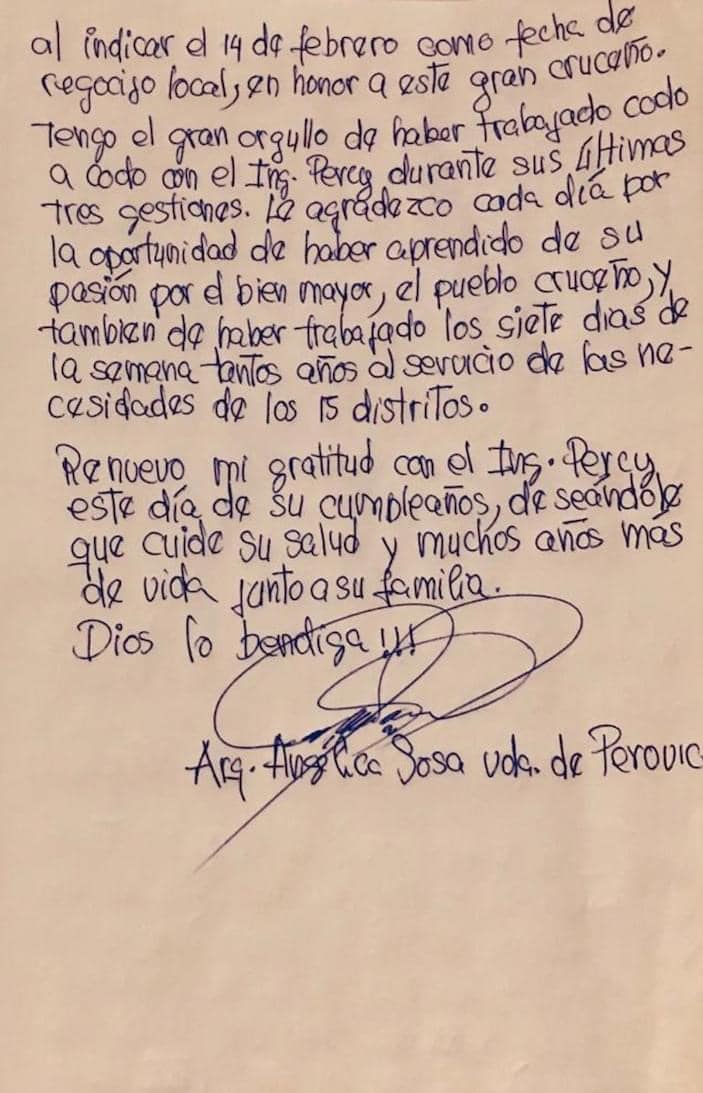 al indicar el 14 de febrero como fecha de
regocijo local, en honor a este gran cruceño.
Tengo el gran orgullo de haber trabajado codo
a codo con el Ing. Percy durante sus últimas
tres gestiones. Le agradezco cada día por
la oportunidad de haber aprendido de su
pasión por el bien mayor, el pueblo cruceño, y
tambien de haber trabajado los siete dias de
la semana tantos años al servicio de las ne-
cesidades de los 15 distritos.
Renuevo mi gratitud con el Ing. Percy
este día de su cumpleaños, deseándole
que cuide su salud y muchos años más
de vida junto a su familia.
Dios lo bendiga !!!
Arq. Angélica Sosa vda. de Perovic